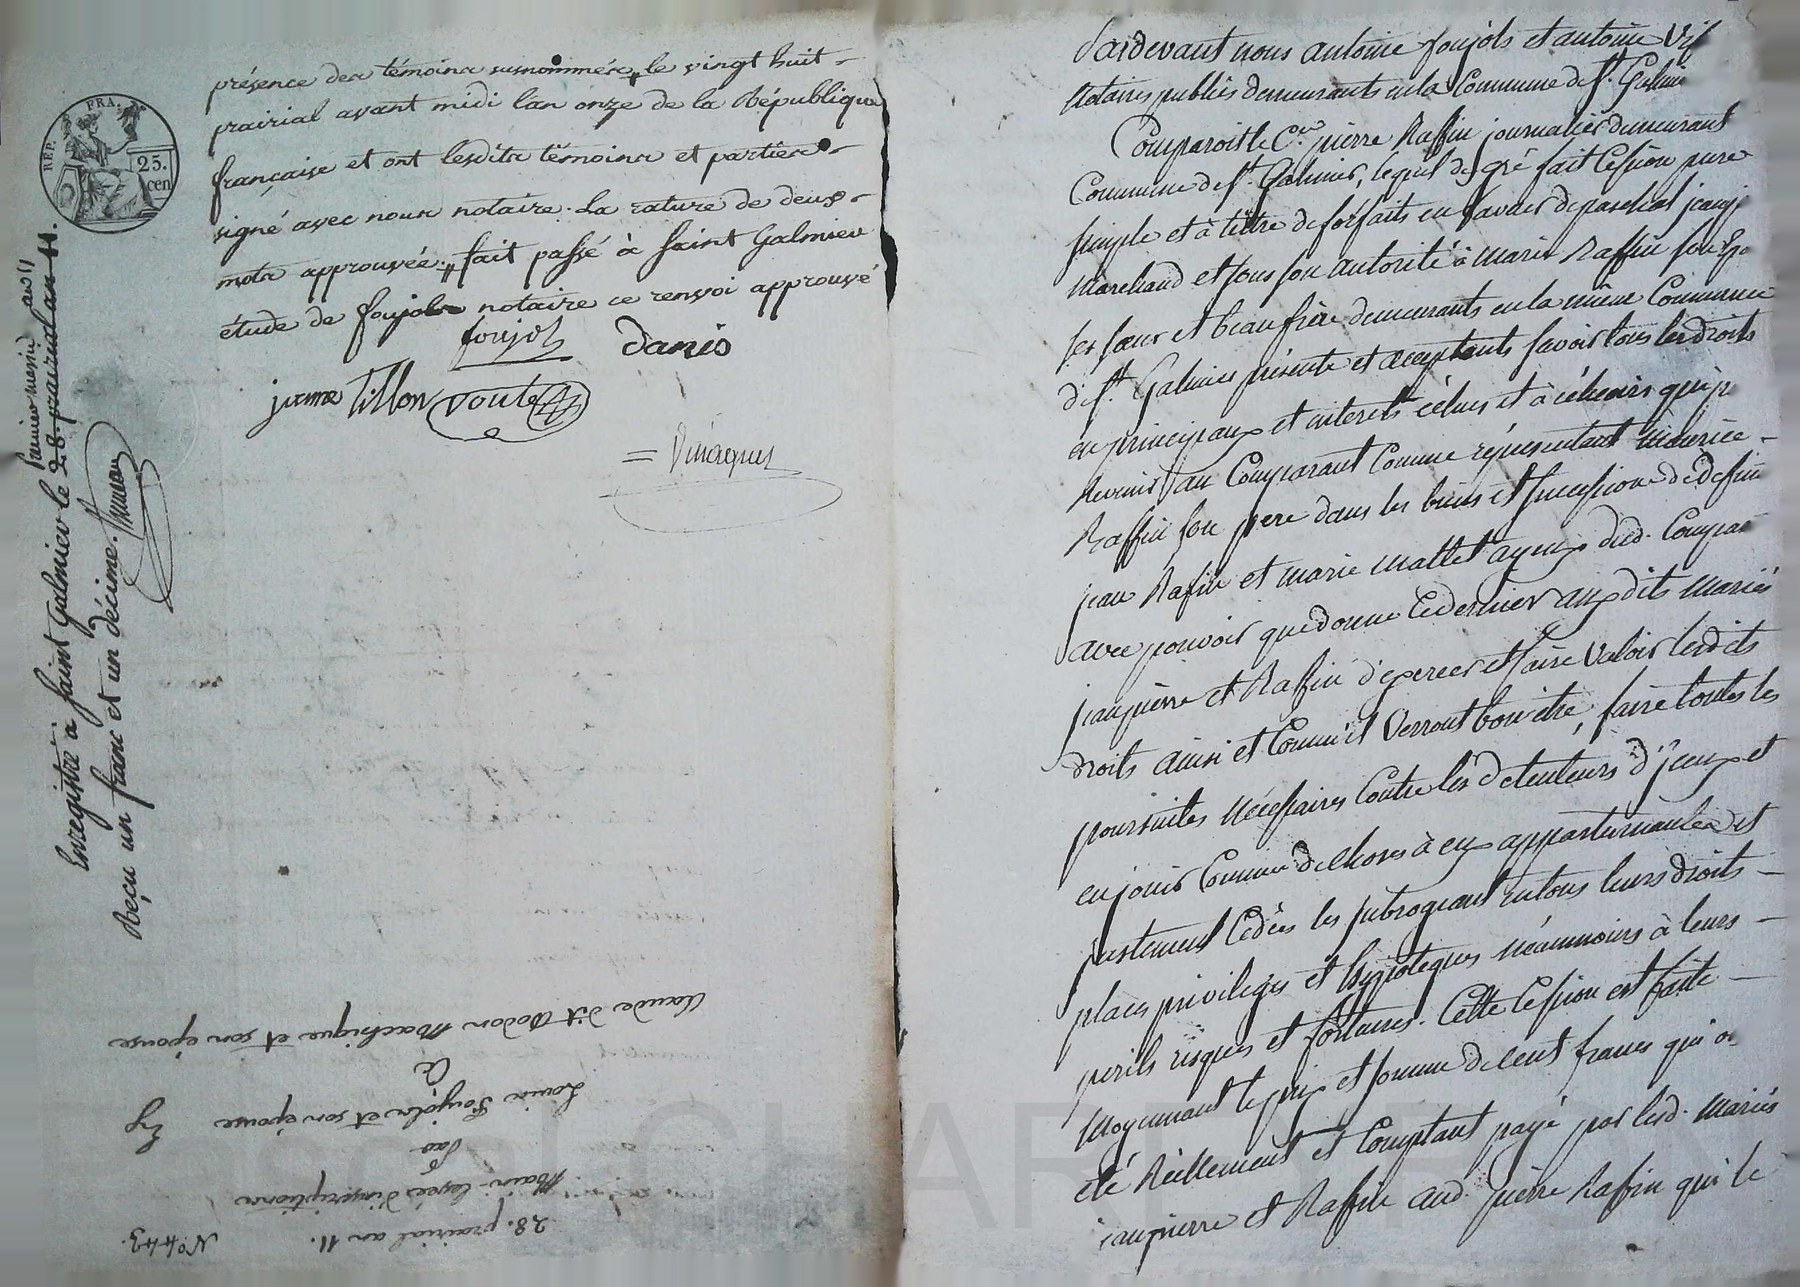 présence des témoins susnommés, le vingt huit
prairial avant midi l'an onze de la République
française et ont lesdits témoins et parties
signé avec nous notaire. La rature de deux
mots approuvée. fait passé à saint Galmier
étude de foujols notaire ce renvoi approuvé
foujols
danis
jeanne tillon
voute
REP. FRA.
25.
cen
Enregistré à saint Galmier le 28 prairial an 11.
Premier messid. an 11
Reçu un franc et un décime.
N.º 443.
28. prairial an 11.
Main-levée d'inscriptions
Par
Louis Foujols et son épouse
A
Claude dit Dodon Machique et son épouse
Pardevant nous antoine foujols et antoine
Notaires publics demeurants en la Commune de St. Galmie
Comparoit le Cen. pierre Raffin journalier demeurant
Commune de St. Galmier, lequel de gré fait Cession pure
simple et à titre de forfaits en faveur de jeanpi
Marchand et sous son autorité à marie Raffin son
ses sœur et beaufrère demeurants en la même Commune
de St. Galmier présents et acceptants savoir tous les droits
en principaux et interets échus et à échevirs qui p
Revenir au Comparant Comme représentant maurice
Raffin son pere dans les biens et succession de defunt
jean Rafin et marie mallet ayeux dud. Compar
avec pouvoir que donne Ce dernier aux dits mariés
jeanpierre et Raffin d'exercer et faire Valoir lesdits
droits ainsi et Comme ils Verront bon être, faire toutes les
poursuites nécessaires Contre les detenteurs d'iceux et
en jouir Comme de choses à eux appartenantes et
justement Cédées les subrogeant en tous leurs droits
places privileges et hypoteques néanmoins à leurs
perils risques et fortunes. Cette Cession est faite
Moyennant le prix et somme de cent francs qui a
été Réellement et Comptant payé par lesd. mariés
jeanpierre et Raffin aud. pierre Raffin qui le